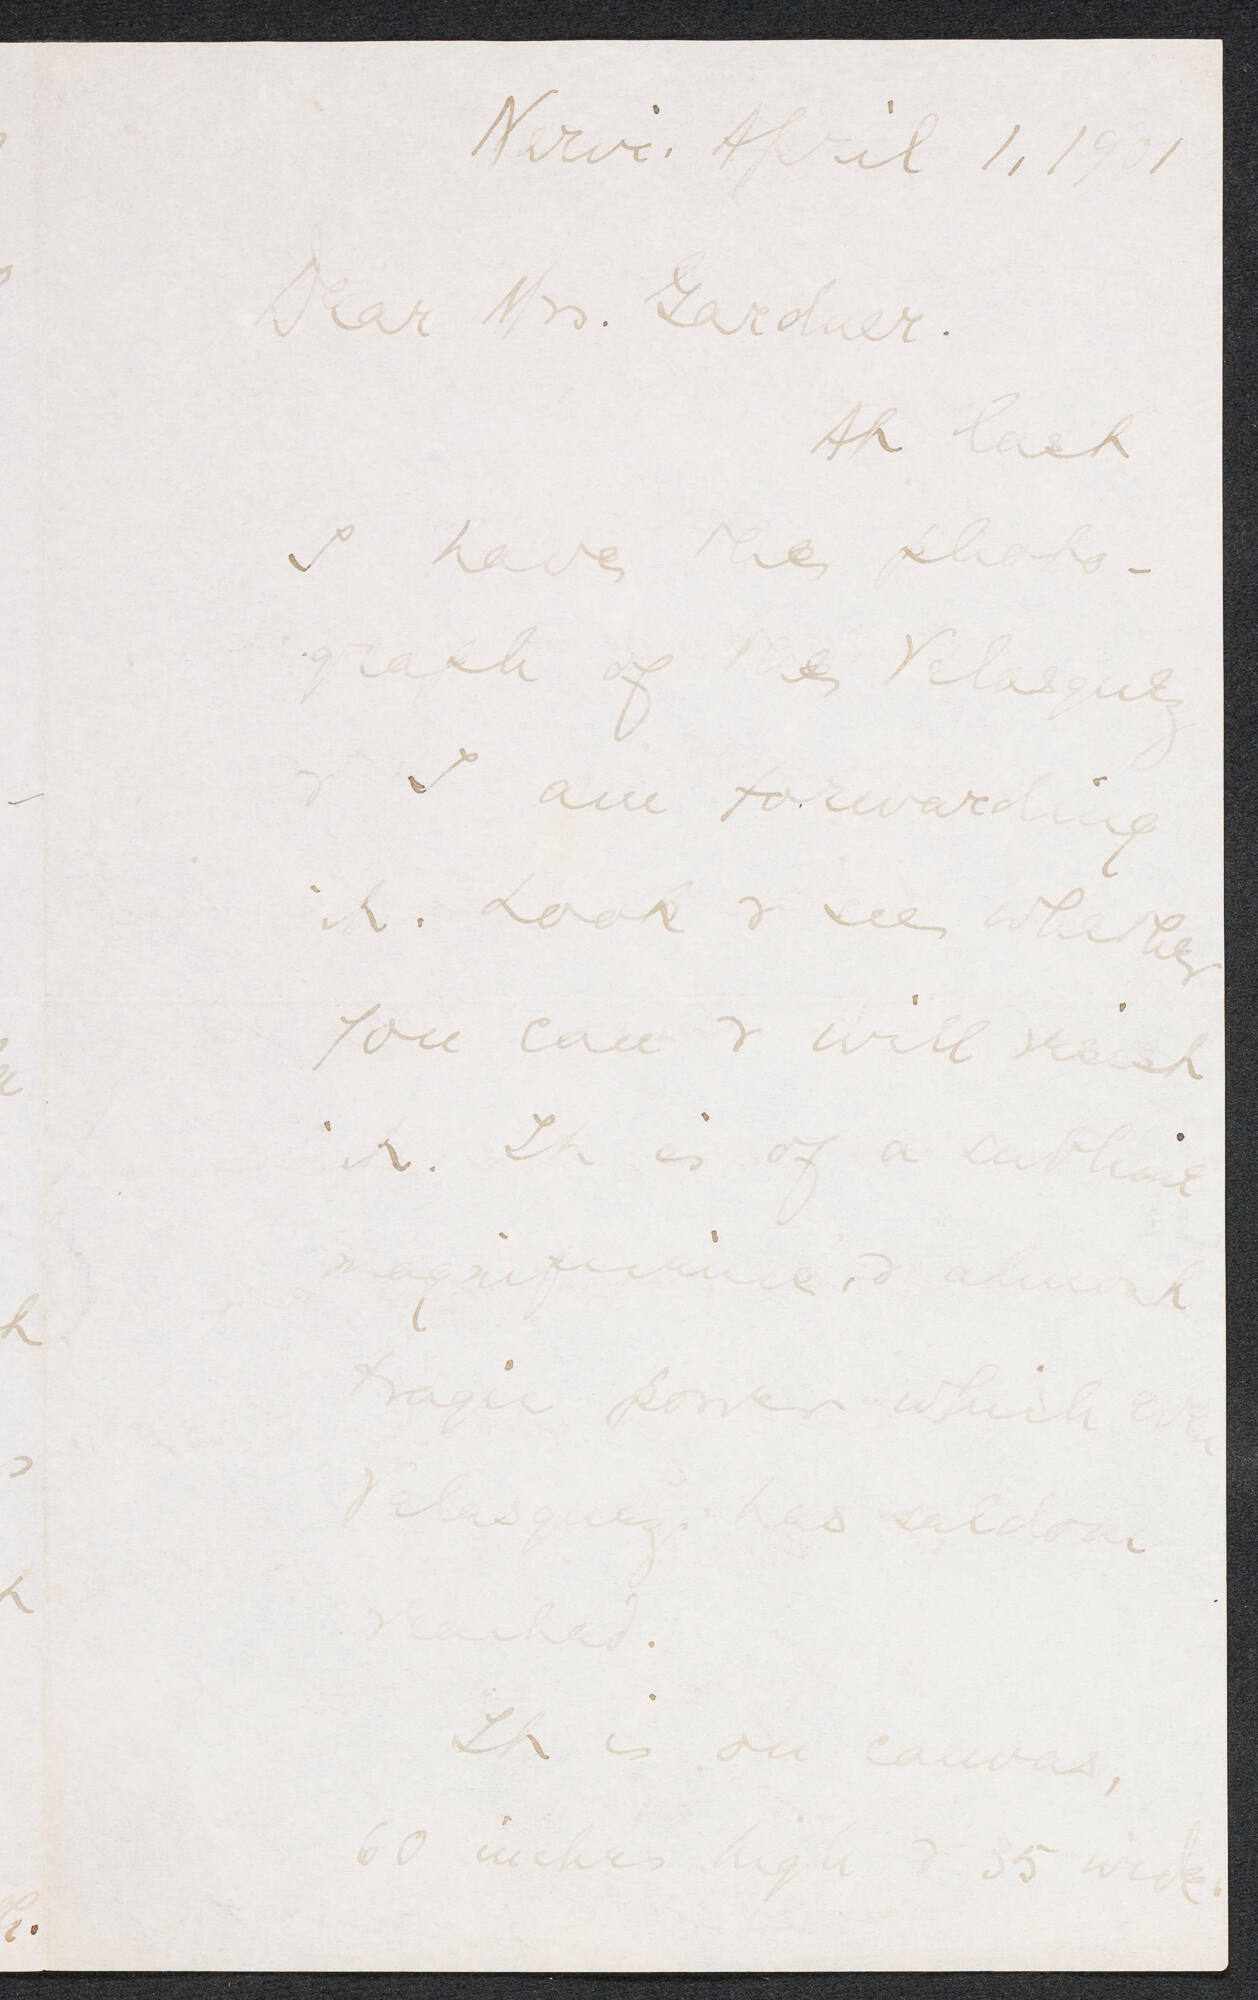 Nervi. April 1, 1901
Dear Mrs. Gardner.
At last
I have the photo-
graph of the Velasquez
& I am forwarding
it. Look & see whether
you can & will resist
it. It is of a sublime
magnificence, & almost
tragic power which even
Velasquez has seldom
reached.
It is on canvas,
60 inches high & 35 wide.